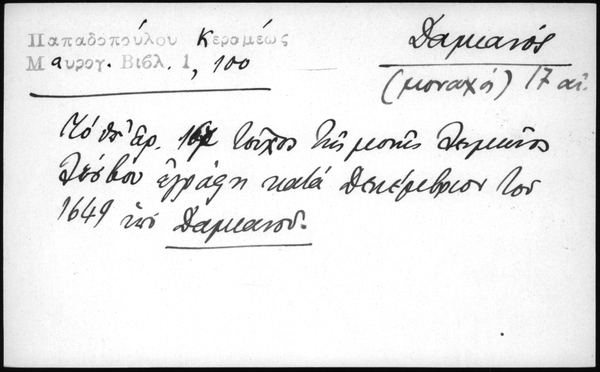 Παπαδοπούλου Κεραμέως
Μαυρογ. Βιβλ. 1, 100
Δαμιανός
(μοναχός) 17 αἰ.
Τό ὑπ' ἀρ. τεῦχος τῆς μονῆς Λειμῶνος
Λέσβου ἐγράφη κατά Δεκέμβριον τοῦ
1649 ὑπό Δαμιανοῦ.